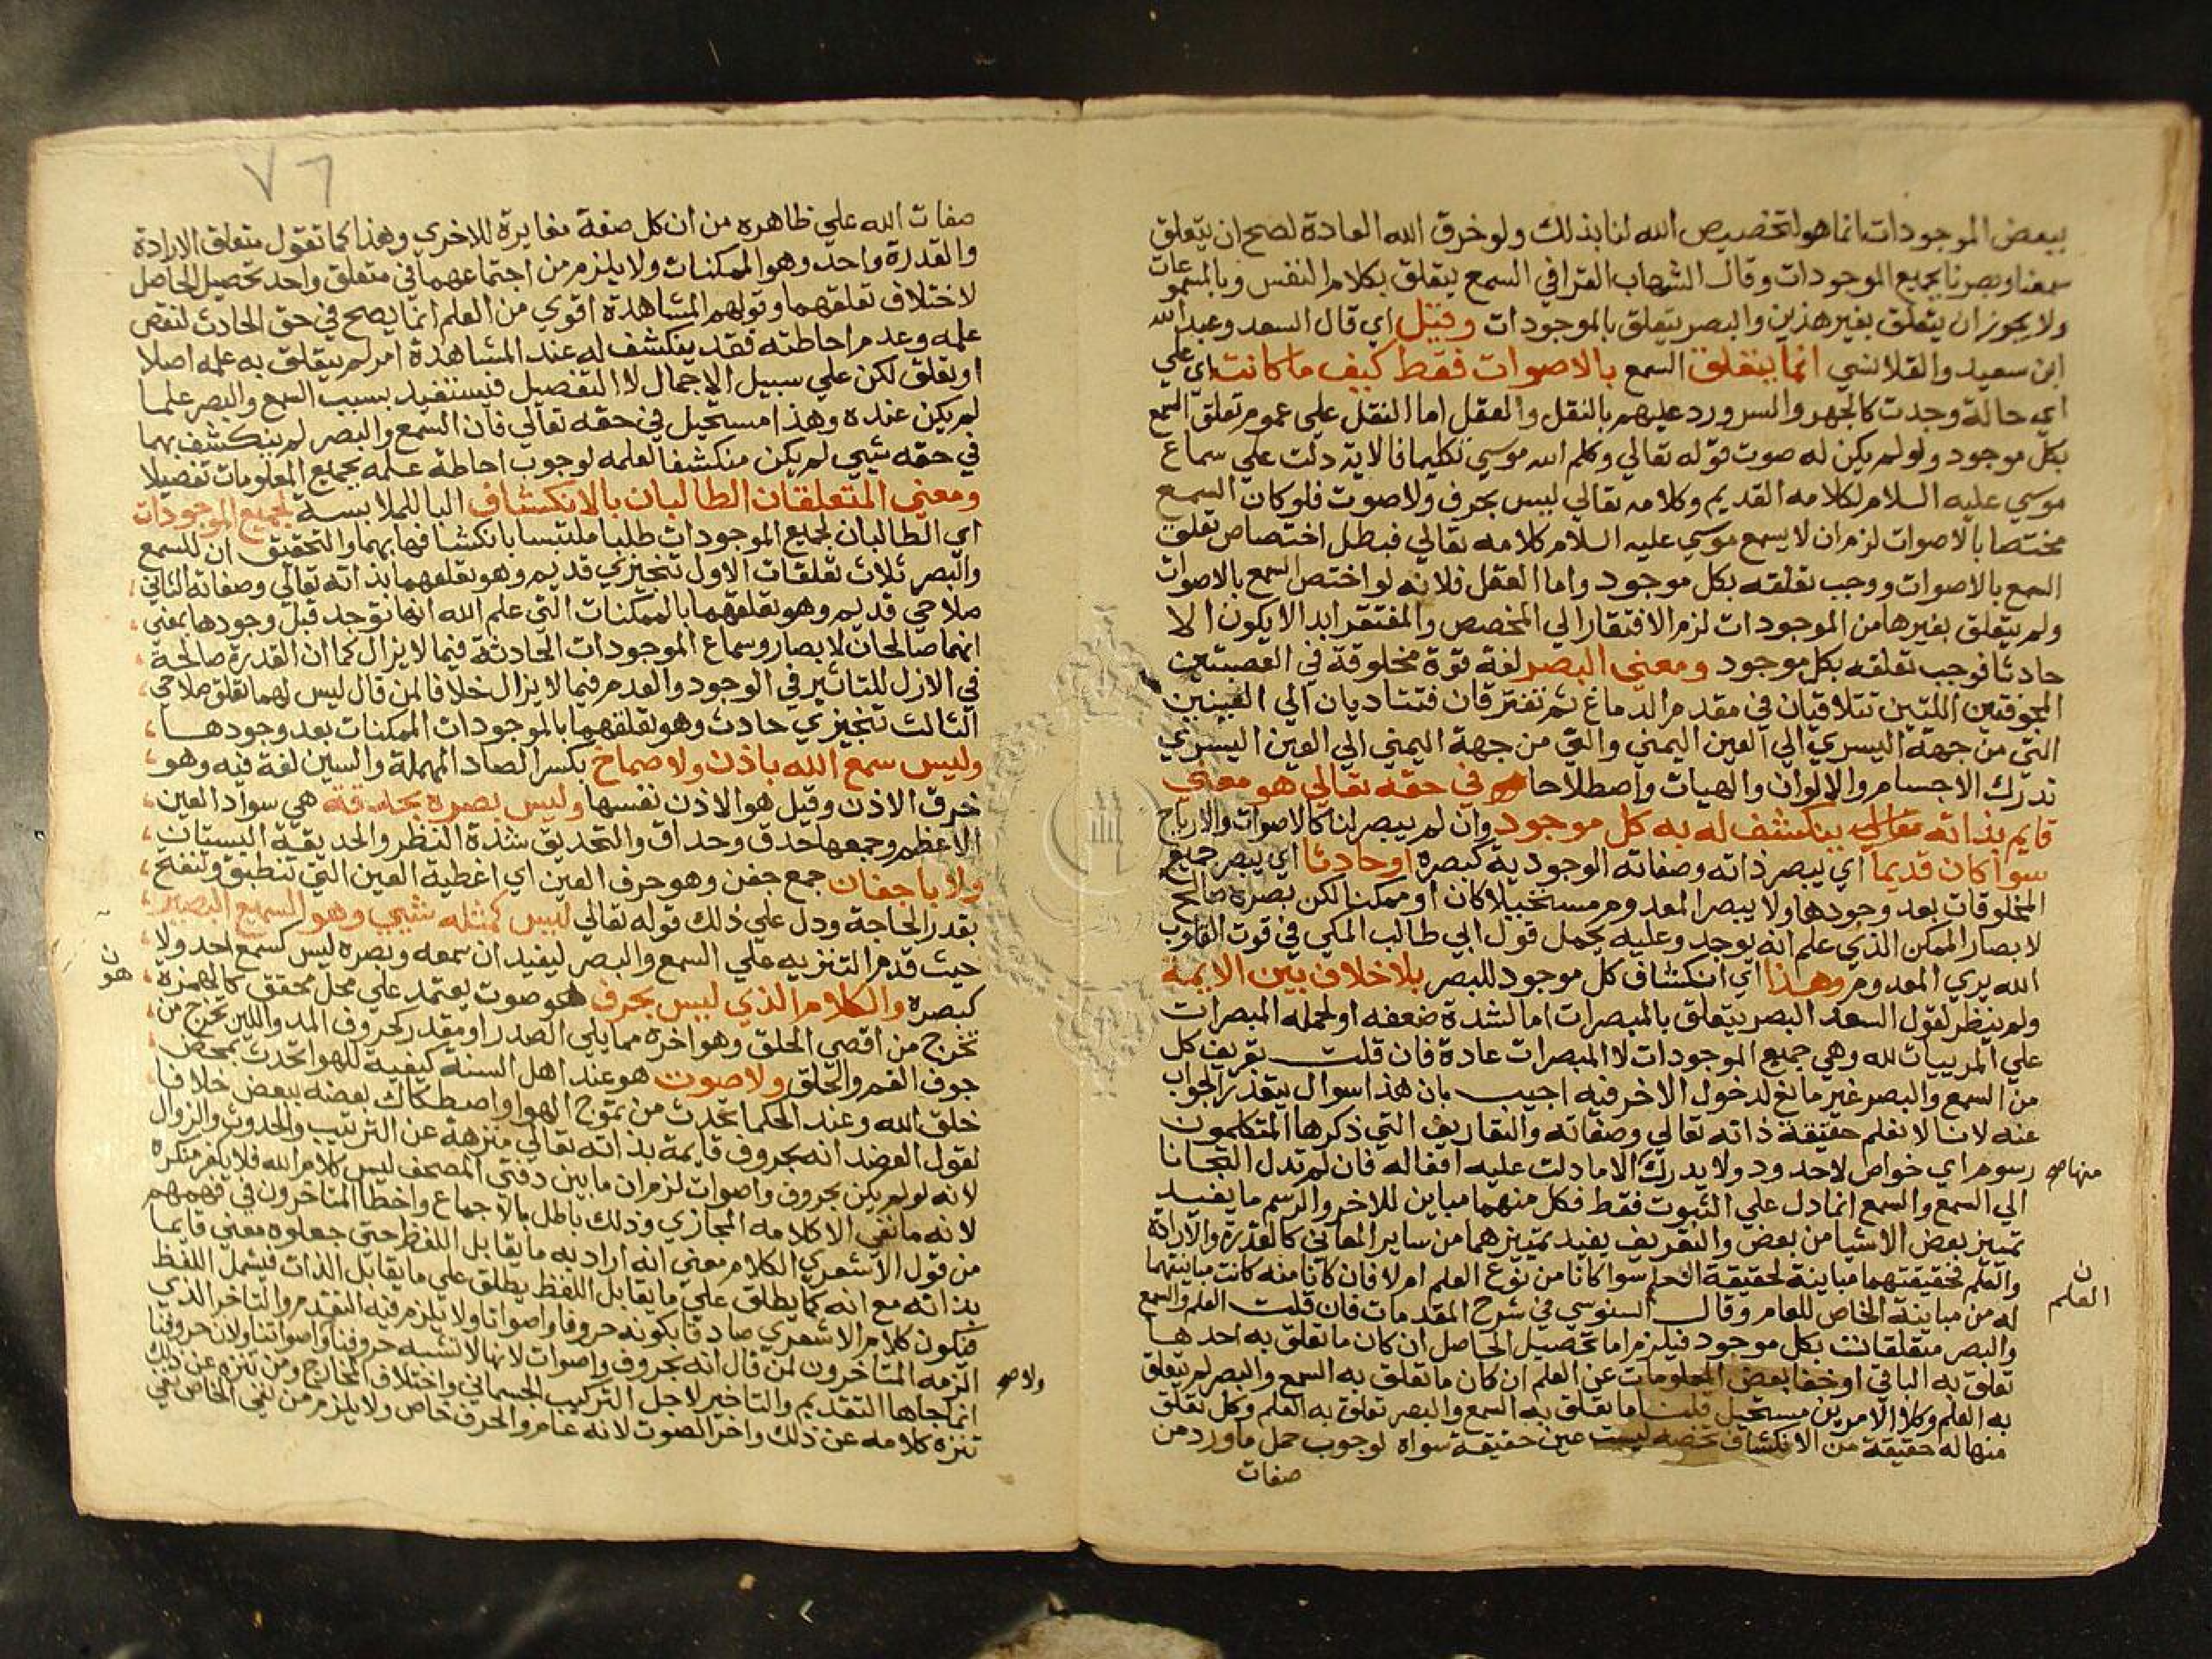 ببعض الموجودات انما هو لتخصيص الله لنا بذلك ولو خرق الله العادة لصح ان يتعلق
سمعنا وبصرنا بجميع الموجودات وقال الشهاب القرافي السمع يتعلق بكلام النفس وبالمسموعات
ولا يجوز ان يتعلق بغير هذين والبصر يتعلق بالموجودات وقيل اي قال السعد وعبد الله
ابن سعيد والقلانسي انما يتعلق السمع بالاصوات فقط كيف ما كانت اي علي
اي حالة وجدت كالجهر والسر ورد عليهم بالنقل والعقل اما النقل علي عموم تعلق السمع
بكل موجود ولو لم يكن له صوت قوله تعالي وكلم الله موسي تكليما فالاية دلت علي سماع
موسي عليه السلام لكلامه القديم وكلامه تعالي ليس بحرف ولا صوت فلو كان السمع
مختصا بالاصوات لزم ان لا يسمع موسي عليه السلام كلامه تعالي فبطل اختصاص تعلق
السمع بالاصوات ووجب تعلقه بكل موجود واما العقل فلانه لو اختص السمع بالاصوات
ولم يتعلق بغيرها من الموجودات لزم الافتقار الي المخصص والمفتقر ابدا لا يكون الا
حادثا فوجب تعلقه بكل موجود ومعني البصر لغة قوة مخلوقة في العصبتين
المجوفتين اللتين تتلاقيان في مقدم الدماغ ثم تفترقان فتتاديان الي العينين
التي من جهة اليسري الي العين اليمني والتي من جهة اليمني الي العين اليسري
تدرك الاجسام والالوان والهيات واصطلاحا في حقه تعالي هو معني
قايم بذاته تعالي ينكشف له به كل موجود وان لم يبصر لنا كالاصوات والارياح
سوا كان قديما اي يبصر ذاته وصفاته الوجودية كبصره او حادثا اي يبصر جميع
المخلوقات بعد وجودها ولا يبصر المعدوم مستحيلا كان او ممكنا لكن بصره صالح
لابصار الممكن الذي علم انه يوجد وعليه يحمل قول ابي طالب المكي في قوت القلوب
الله يري المعدوم وهذا اي انكشاف كل موجود للبصر بلا خلاف بين الايمة
ولم ينظر لقول السعد البصر يتعلق بالمبصرات اما لشدة ضعفه او لحمله المبصرات
علي المرييات لله وهي جميع الموجودات لا المبصرات عادة فان قلت تعريف كل
من السمع والبصر غير مانع لدخول الاخر فيه اجيب بان هذا سوال يتعذر الجواب
عنه لاننا لا نعلم حقيقة ذاته تعالي وصفاته والتعاريف التي ذكرها المتكلمون
رسوم اي خواص لا حدود ولا يدرك الا ما دلت عليه افعاله فان لم تدل التجانا
منها صح
الي السمع والسمع انما دل علي الثبوت فقط فكل منهما مباين للاخر والرسم ما يفيد
تمييز بعض الاشيا من بعض والتعريف يفيد تمييزهما من ساير المعاني كالقدرة والارادة
والعلم فحقيقتهما مباينة لحقيقة العلم سوا كانا من نوع العلم ام لا فان كانا منه كانت مباينتهما
ن العلم
له من مباينة الخاص للعام وقال السنوسي في شرح المقدمات فان قلت العلم والسمع
والبصر متعلقات بكل موجود فيلزم اما تحصيل الحاصل ان كان ما تعلق به احدها
تعلق به الباقي او خفا بعض المعلومات عن العلم ان كان ما تعلق به السمع والبصر لم يتعلق
به العلم وكلا الامرين مستحيل قلنا ما يتعلق به السمع والبصر تعلق به العلم وكل تعلق
منها له حقيقة من الانكشاف تخصه ليست عين حقيقة سواه لوجوب حمل ما ورد من
صفات
٧٦
صفات الله علي ظاهره من ان كل صفة مغايرة للاخري وهذا كما تقول متعلق الارادة
والقدرة واحد وهو الممكنات ولا يلزم من اجتماعهما في متعلق واحد تحصيل الحاصل
لاختلاف تعلقهما وقولهم المشاهدة اقوي من العلم انما يصح في حق الحادث لنقص
علمه وعدم احاطته فقد ينكشف له عند المشاهدة امر لم يتعلق به علمه اصلا
او تعلق لكن علي سبيل الاجمال لا التفصيل فيستفيد بسبب السمع والبصر علما
لم يكن عنده وهذا مستحيل في حقه تعالي فان السمع والبصر لم ينكشف بهما
في حقه شيي لم يكن منكشفا لعلمه لوجوب احاطة علمه بجميع المعلومات تفصيلا
ومعني المتعلقان الطالبان بالانكشاف البا للملابسة لجميع الموجودات
اي الطالبان لجميع الموجودات طلبا ملتبسا بانكشافها بهما والتحقيق ان للسمع
والبصر ثلاث تعلقات الاول تنجيزي قديم وهو تعلقهما بذاته تعالي وصفاته الثاني
صلاحي قديم وهو تعلقهما بالممكنات التي علم الله انها توجد قبل وجودها بمعني
انهما صالحان لابصار وسماع الموجودات الحادثة فيما لا يزال كما ان القدرة صالحة
في الازل للتاثير في الوجود والعدم فيما لا يزال خلافا لمن قال ليس لهما تعلق صلاحي
الثالث تنجيزي حادث وهو تعلقهما بالموجودات الممكنات بعد وجودها
وليس سمع الله باذن ولا صماخ بكسر الصاد المهملة والسين لغة فيه وهو
خرق الاذن وقيل هو الاذن نفسها وليس بصره بحدقة هي سواد العين
الاعظم وجمعها حدق وحداق والتحديق شدة النظر والحديقة البستان
ولا باجفان جمع جفن وهو حرف العين اي اغطية العين التي تنطبق وتنفتح
بقدر الحاجة ودل علي ذلك قوله تعالي ليس كمثله شيي وهو السميع البصير
حيث قدم التنزيه علي السمع والبصر ليفيد ان سمعه وبصره ليس كسمع احد ولا
كبصره والكلام الذي ليس بحرف هو صوت يعتمد علي محل محقق كالهمزة
ن هو
تخرج من اقصي الحلق وهو اخره مما يلي الصدر او مقدر كحروف المد واللين تخرج من
جوف الفم والحلق ولا صوت هو عند اهل السنة كيفية للهوا تحدث بمحض
خلق الله وعند الحكما تحدث من تموج الهوا واصطكاك بعضه ببعض خلافا
لقول العضد انه بحروف قايمة بذاته تعالي منزهة عن الترتيب والحدوث والزوال
لانه لو لم يكن بحروف واصوات لزم ان ما بين دفتي المصحف ليس كلام الله فلا يكفر منكره
لانه ما نفي الا كلامه المجازي وذلك باطل بالاجماع واخطا المتاخرون في فهمهم
من قول الاشعري الكلام معني انه اراد به ما يقابل اللفظ حتي جعلوه معني قايما
بذاته مع انه كما يطلق علي ما يقابل اللفظ يطلق علي ما يقابل الذات فيشمل اللفظ
فيكون كلام الاشعري صادقا بكونه حروفا واصواتا ولا يلزم فيه التقدم والتاخر الذي
الزمه المتاخرون لمن قال انه بحروف واصوات لانها لا تشبه حروفنا واصواتنا ولان حروفنا
ولا صح
انما جاها التقديم والتاخير لاجل التركيب الجسماني واختلاف المخارج ومن تنزه عن ذلك
تنزه كلامه عن ذلك واخر الصوت لانه عام والحرف خاص ولا يلزم من نفي الخاص نفي